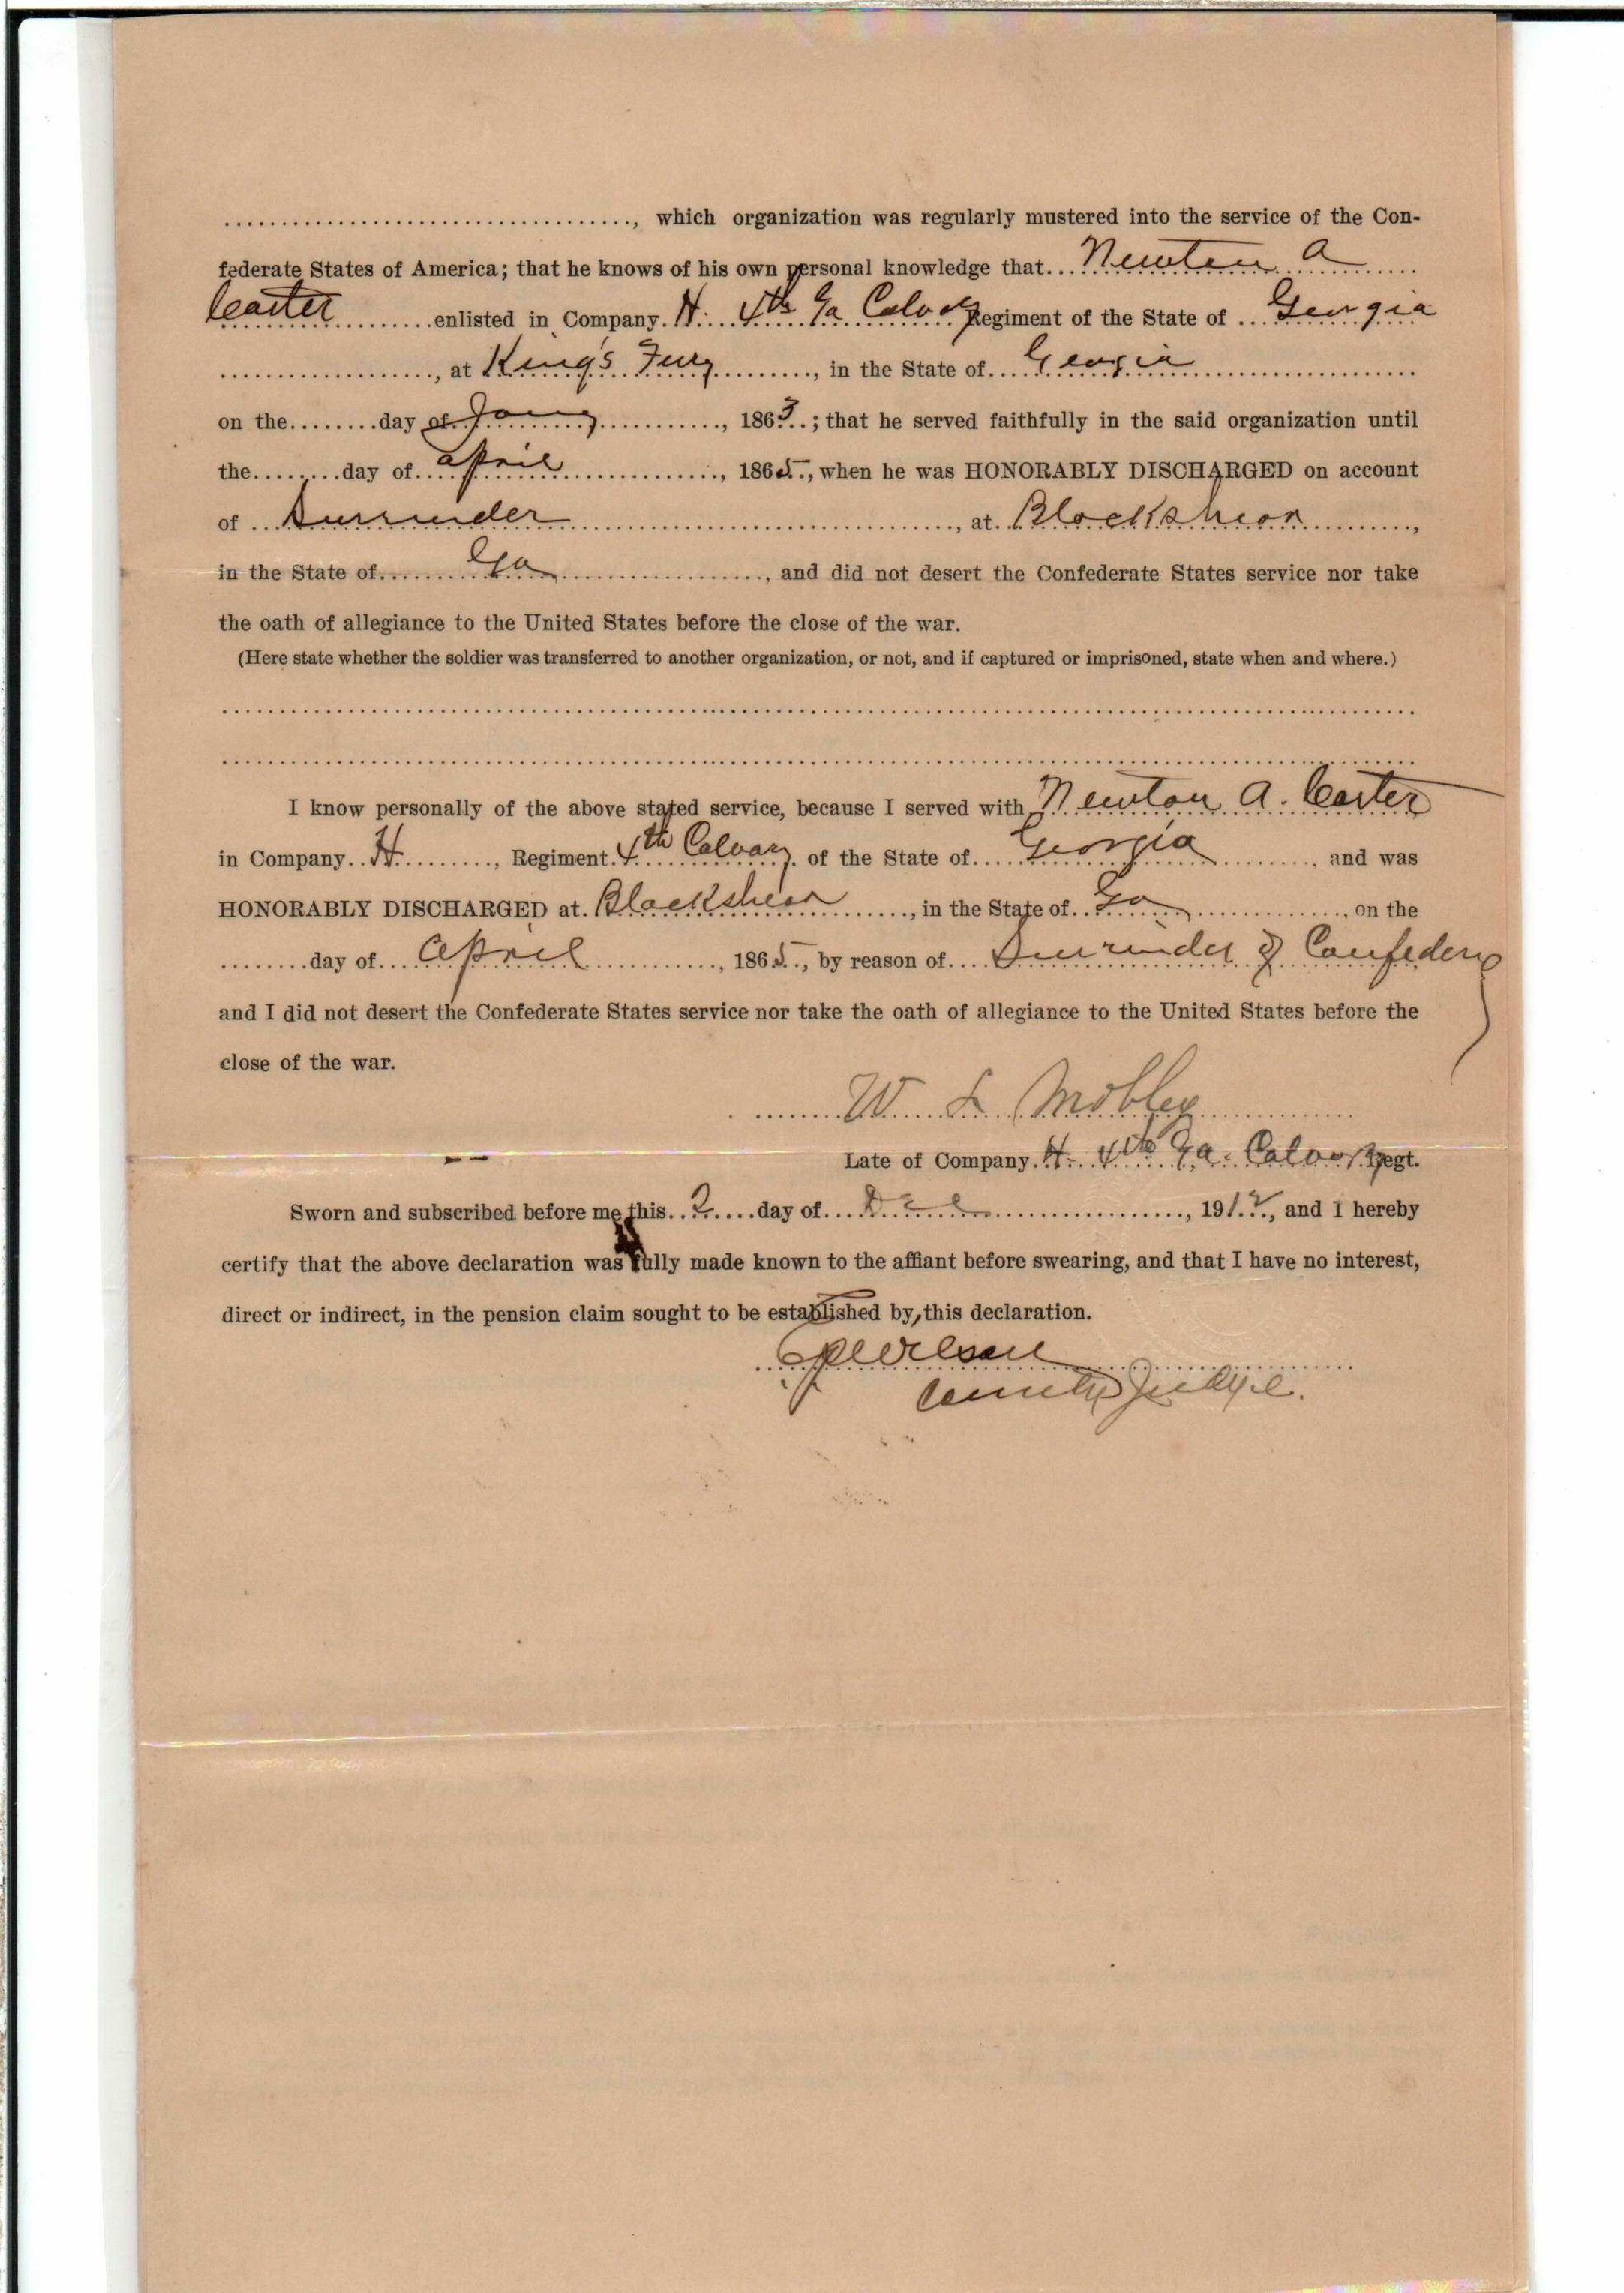 ................................, which organization was regularly mustered into the service of the Con-
federate States of America; that he knows of his own personal knowledge that... Newton A
Carter ......... enlisted in Company. H. 4th Ga Calvary Regiment of the State of ... Georgia
..................., at King's Fury ........., in the State of.... Georgia ....................
on the........day of. Jany ..........., 1863..; that he served faithfully in the said organization until
the........day of.. april .............., 1865.., when he was HONORABLY DISCHARGED on account
of ... Surrunder ................................., at. Blackshear .........,
in the State of....... Ga .................., and did not desert the Confederate States service nor take
the oath of allegiance to the United States before the close of the war.
(Here state whether the soldier was transferred to another organization, or not, and if captured or imprisoned, state when and where.)
I know personally of the above stated service, because I served with Newton A. Carter
in Company.. H ........., Regiment. 4th Calvary. of the State of.... Georgia ........., and was
HONORABLY DISCHARGED at. Blackshear ........, in the State of.. Ga .............., on the
........day of... April ..........., 1865.., by reason of.... Surrinder of Confedery
and I did not desert the Confederate States service nor take the oath of allegiance to the United States before the
close of the war.
W L Mobley
Late of Company. H. 4th Ga. Calvary Regt.
Sworn and subscribed before me this.. 2 ....day of... Dec .................., 1912, and I hereby
certify that the above declaration was fully made known to the affiant before swearing, and that I have no interest,
direct or indirect, in the pension claim sought to be established by this declaration.
County Judge.